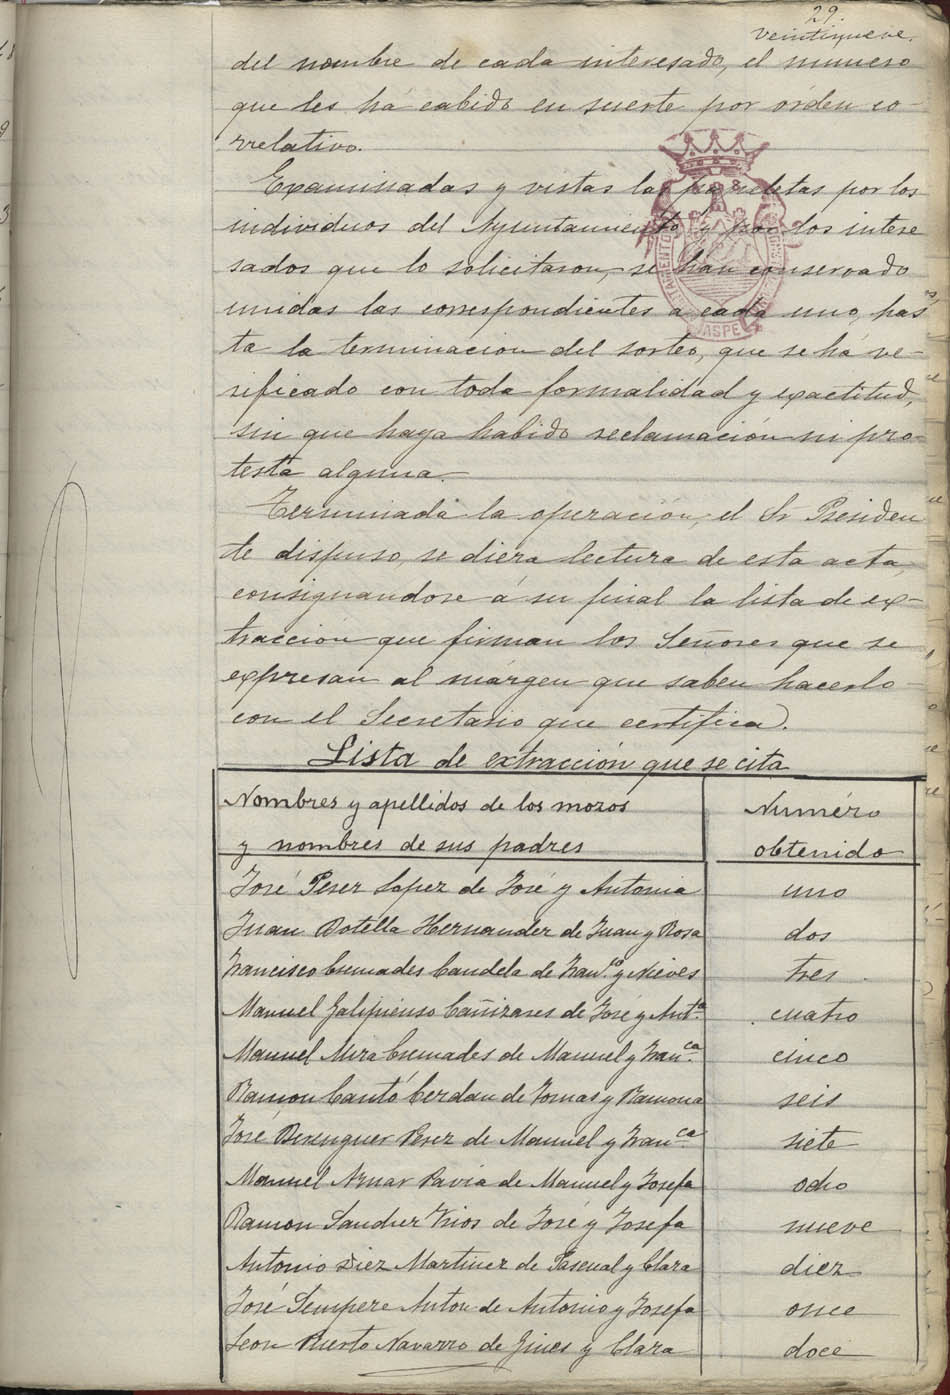 29.
veintinueve.
del nombre de cada interesado, el numero
que les há cabido en suerte por órden co-
rrelativo.
Examinadas y vistas las papeletas por los
individuos del Ayuntamiento y por los intere
sados que lo solicitaron, se han conservado
unidas las correspondientes a cada uno, has
ta la terminacion del sorteo, que se há ve-
rificado con toda formalidad y exactitud,
sin que haya habido reclamación ni pro-
testa alguna.
Terminada la operación, el Sr Presiden
te dispuso, se diera lectura de esta acta,
consignandose á su final la lista de ex-
tracción que firman los Señores que se
expresan al márgen que saben hacerlo
con el Secretario que certifica.
Lista de extracción que se cita
Nombres y apellidos de los mozos Numéro
y nombres de sus padres obtenido
José Perez Lopez de José y Antonia uno
Juan Botella Hernandez de Juan y Rosa dos
Francisco Cremades Candela de Franco y Nieves tres
Manuel Galipienso Cañizares de José y Anta cuatro
Manuel Mira Cremades de Manuel y Franca cinco
Ramon Cantó Cerdan de Tomas y Ramona seis
José Berenguer Perez de Manuel y Franca siete
Manuel Aznar Pavia de Manuel y Josefa ocho
Ramon Sanchez Rios de José y Josefa nueve
Antonio Diez Martinez de Pascual y Clara diez
José Sempere Anton de Antonio y Josefa once
Leon Puerto Navarro de Gines y Clara doce
ASPE